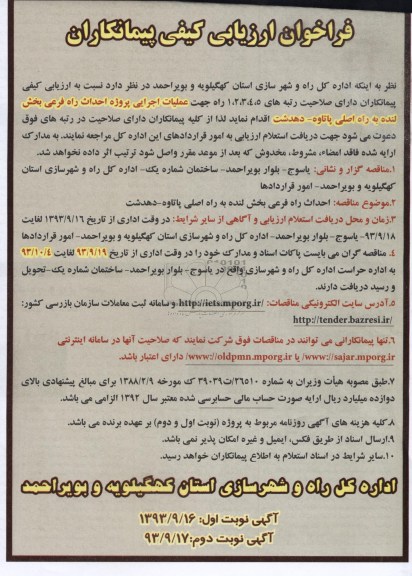 فراخوان ارزیابی کیفی پیمانکاران
نظر به اینکه اداره کل راه و شهر سازی استان کهگیلویه و بویراحمد در نظر دارد نسبت به ارزیابی کیفی
پیمانکاران دارای صلاحیت رتبه های ۱،۲،۳،۴،۵ راه جهت عملیات اجرایی پروژه احداث راه فرعی بخش
لنده به راه اصلی پاتاوه- دهدشت اقدام نماید لذا از کلیه پیمانکاران دارای صلاحیت در رتبه های فوق
دعوت می شود جهت دریافت استعلام ارزیابی به امور قراردادهای این اداره کل مراجعه نمایند. به مدارک
ارایه شده فاقد امضاء، مشروط، مخدوش که بعد از موعد مقرر واصل شود ترتیب اثر داده نخواهد شد.
۱.مناقصه گزار و نشانی: یاسوج- بلوار بویراحمد- ساختمان شماره یک- اداره کل راه و شهرسازی استان
کهگیلویه و بویراحمد- امور قراردادها
۲.موضوع مناقصه: احداث راه فرعی بخش لنده به راه اصلی پاتاوه-دهدشت
۳.زمان و محل دریافت استعلام ارزیابی و آگاهی از سایر شرایط: در وقت اداری از تاریخ ۱۳۹۳/۹/۱۶ لغایت
۹۳/۹/۱۸- یاسوج- بلوار بویراحمد- اداره کل راه و شهرسازی استان کهگیلویه و بویراحمد- امور قراردادها
۴. مناقصه گران می بایست پاکات اسناد و مدارک خود را در وقت اداری از تاریخ ۹۳/۹/۱۹ لغایت ۹۳/۱۰/۴
به اداره حراست اداره کل راه و شهرسازی واقع در یاسوج- بلوار بویراحمد- ساختمان شماره یک-تحویل
و رسید دریافت دارند.
۵.آدرس سایت الکترونیکی مناقصات: http://iets.mporg.ir/ وسامانه ثبت معاملات سازمان بازرسی کشور:
http://tender.bazresi.ir/
۶.تنها پیمانکارانی می توانند در مناقصات فوق شرکت نمایند که صلاحیت آنها در سامانه اینترنتی
www.sajar.mporg.ir// یا www.//oldpmn.mporg.ir/ دارای اعتبار باشد.
۷.طبق مصوبه هیأت وزیران به شماره ۲۶۵۱۰/ت۳۹۰۳۹ ک مورخه ۱۳۸۸/۲/۹ برای مبالغ پیشنهادی بالای
دوازده میلیارد ریال ارایه صورت حساب مالی حسابرسی شده معتبر سال ۱۳۹۲ الزامی می باشد.
۸.کلیه هزینه های آگهی روزنامه مربوط به پروژه (نوبت اول و دوم) بر عهده برنده می باشد.
۹.ارسال اسناد از طریق فکس، ایمیل و غیره امکان پذیر نمی باشد.
۱۰.سایر شرایط در اسناد استعلام به اطلاع پیمانکاران خواهد رسید.
اداره کل راه و شهرسازی استان کهگیلویه و بویراحمد
آگهی نوبت اول: ۱۳۹۳/۹/۱۶
آگهی نوبت دوم:۹۳/۹/۱۷